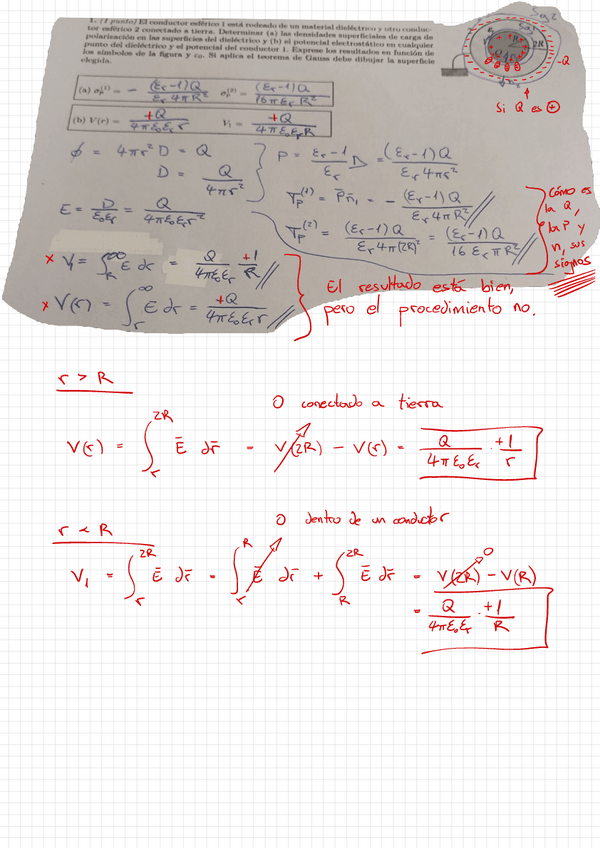 1. (1 punto) El conductor esférico 1 está rodeado de un material dieléctrico y otro conduc-
tor esférico 2 conectado a tierra. Determinar (a) las densidades superficiales de carga de
polarización en las superficies del dieléctrico y (b) el potencial electrostático en cualquier
punto del dieléctrico y el potencial del conductor 1. Exprese los resultados en función de
los símbolos de la figura y ε₀. Si aplica el teorema de Gauss debe dibujar la superficie
elegida.
2R
-Q
Si Q es ⊕
(a) σp⁽¹⁾ = - (εr-1)Q / εr 4πR² σp⁽²⁾ = (εr-1)Q / 16πεrR²
(b) V(r) = +Q / 4πε₀εr r V₁ = +Q / 4πε₀εrR
ϕ = 4πr² D = Q
D = Q / 4πr²
E = D / ε₀εr = Q / 4πε₀εrr²
P = εr-1 / εr D = (εr-1)Q / εr 4πr²
σp⁽¹⁾ = P̄n̄₁ = - (εr-1)Q / εr 4πR²
σp⁽²⁾ = (εr-1)Q / εr 4π(2R)² = (εr-1)Q / 16 εr πR²
cómo es
la Q,
la P y
n, sus
signos
× V₁ = ∫_R^∞ E dr = Q / 4πε₀εr +1 / R
× V(r) = ∫_r^∞ E dr = +Q / 4πε₀εr r
El resultado está bien,
pero el procedimiento no.
r > R
0 conectado a tierra
V(r) = ∫_r^2R Ē dr̄ = V(2R) - V(r) = Q / 4πε₀εr · +1 / r
r < R
0 dentro de un conductor
V₁ = ∫_r^2R Ē dr̄ = ∫_r^R Ē dr̄ + ∫_R^2R Ē dr̄ = V(2R) 0 - V(R)
= Q / 4πε₀εr · +1 / R